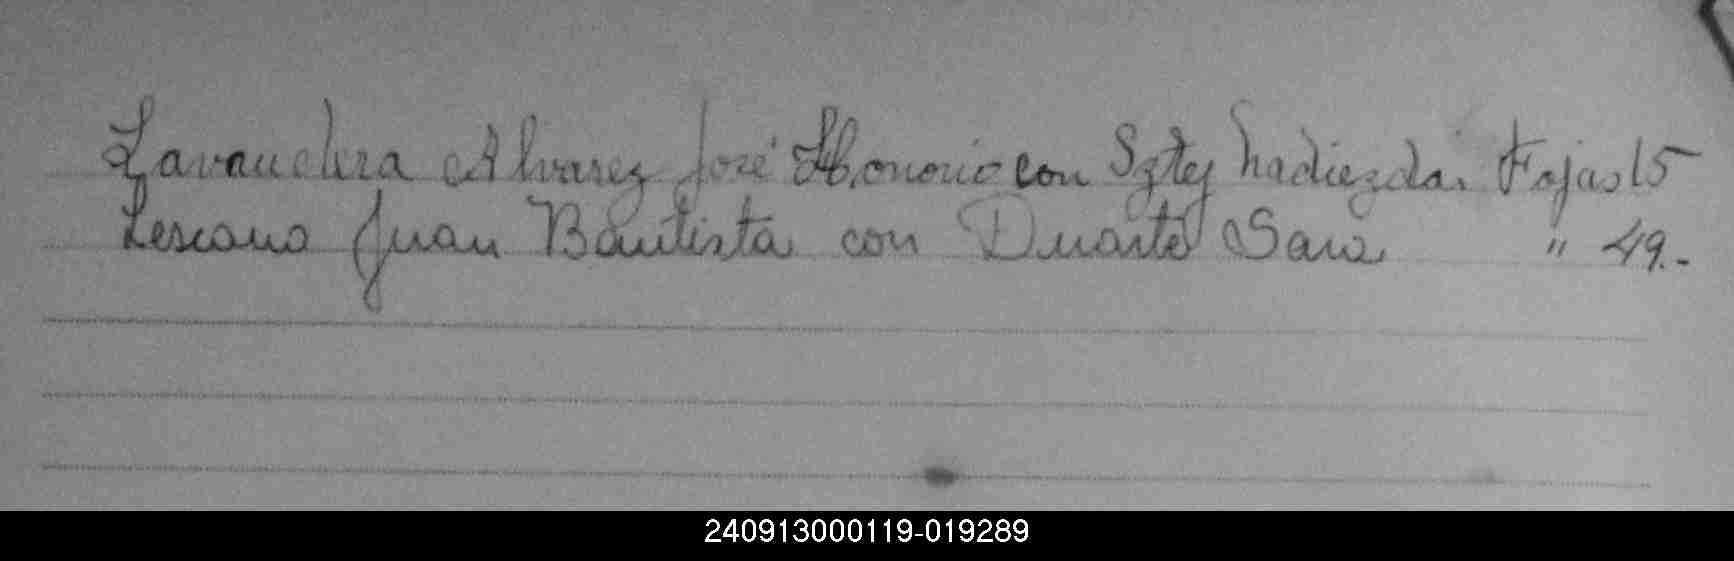 Lavandera Alvarez José Honorio con Sztej Nadiezda. Fojas 15
Lescano Juan Bautista con Duarte Sara " 49.-
240913000119-019289